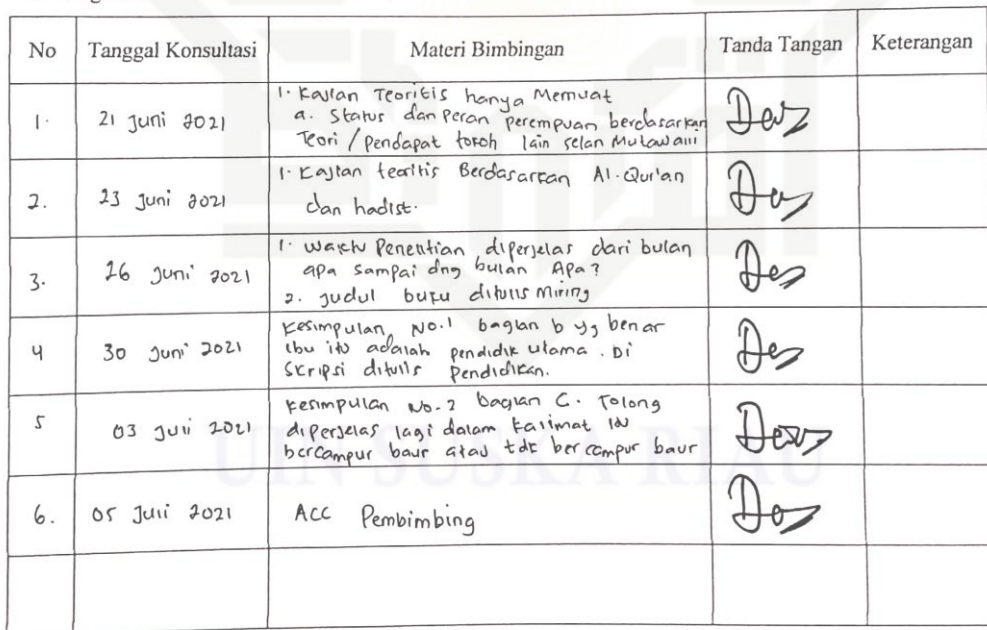 No Tanggal Konsultasi Materi Bimbingan Tanda Tangan Keterangan
1. 21 Juni 2021
1. Kajian Teoritis hanya Memuat
a. Status dan Peran perempuan berdasarkan
Teori / pendapat tokoh lain selan Mutawalli
2. 23 Juni 2021
1. Kajian teoritis Berdasarkan Al-Qur'an
dan hadist.
3. 26 Juni 2021
1. Waktu Penelitian diperjelas dari bulan
apa sampai dng bulan Apa?
2. Judul buku ditulis Miring
4 30 Juni 2021
Kesimpulan No.1 bagian b yg benar
ibu itu adalah pendidik utama. Di
Skripsi ditulis pendidikan.
5 03 Juli 2021
Kesimpulan No.2 bagian C. Tolong
diperjelas lagi dalam kalimat itu
bercampur baur atau tdk bercampur baur
6. 05 Juli 2021 ACC Pembimbing
UIN SUSKA RIAU